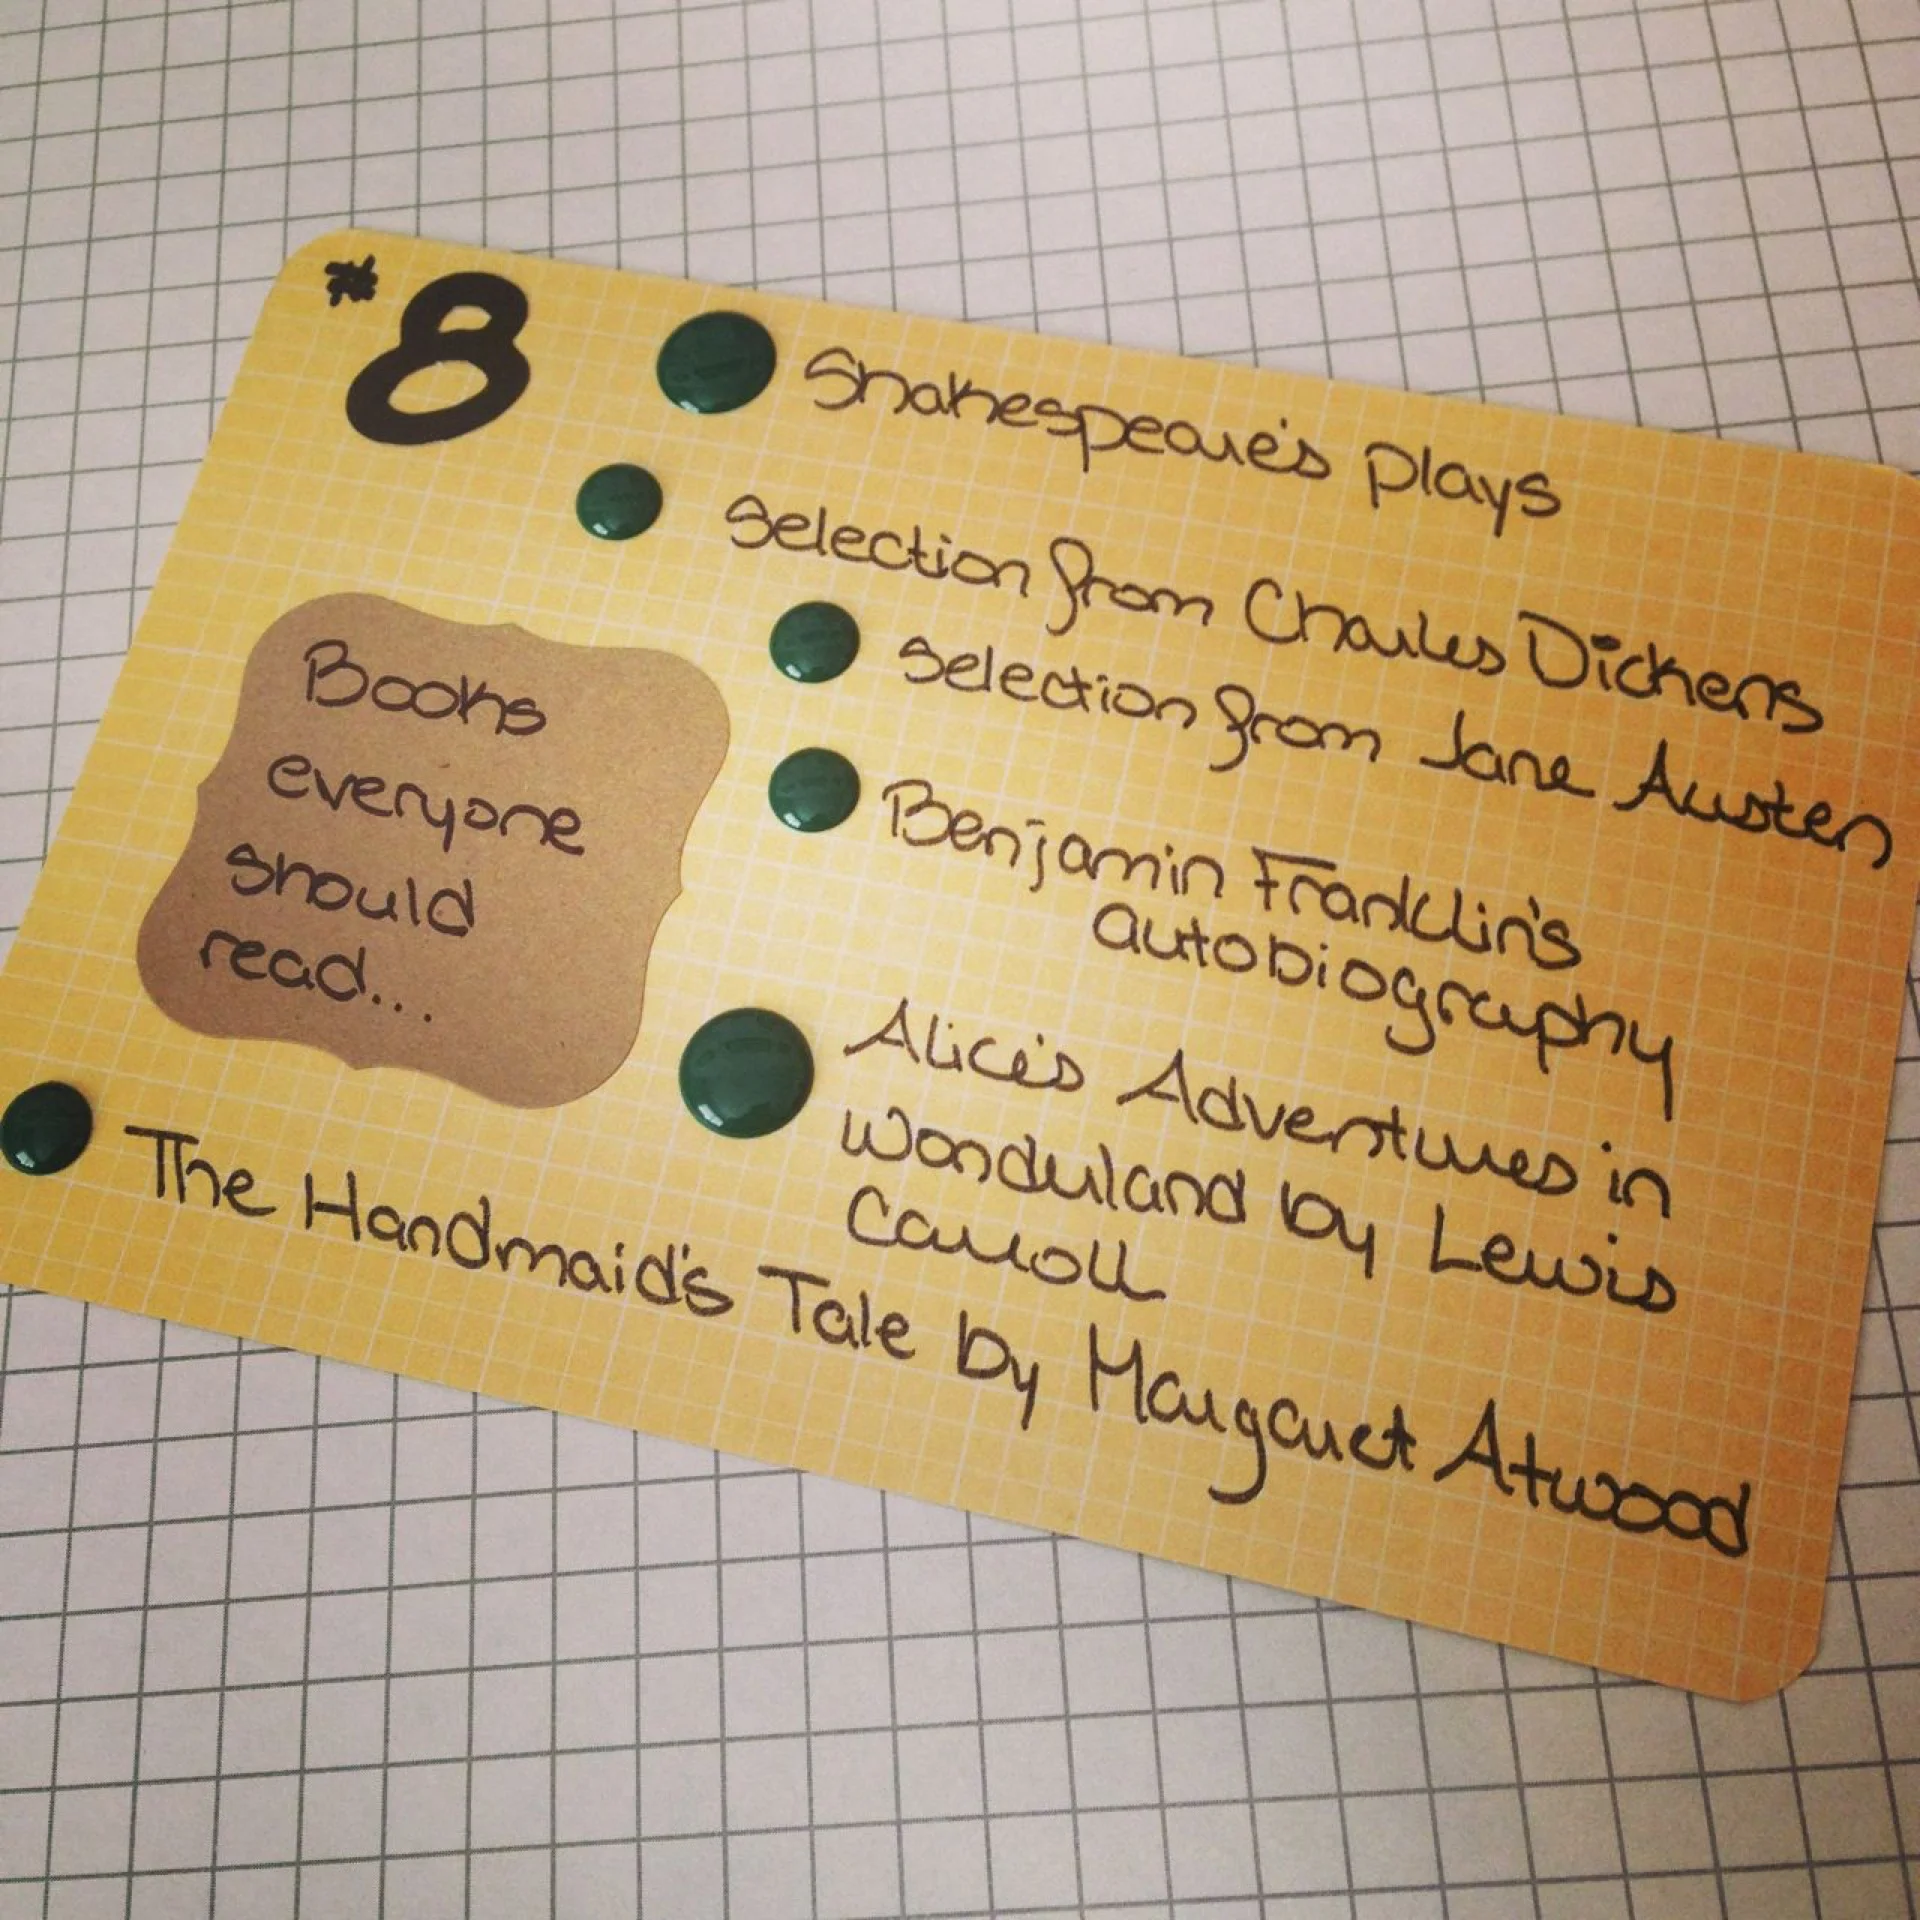 #8
Shakespeare's plays
Selection from Charles Dickens
Selection from Jane Austen
Benjamin Franklin's
autobiography
Books
everyone
should
read...
Alice's Adventures in
Wonderland by Lewis
Carroll
The Handmaid's Tale by Margaret Atwood